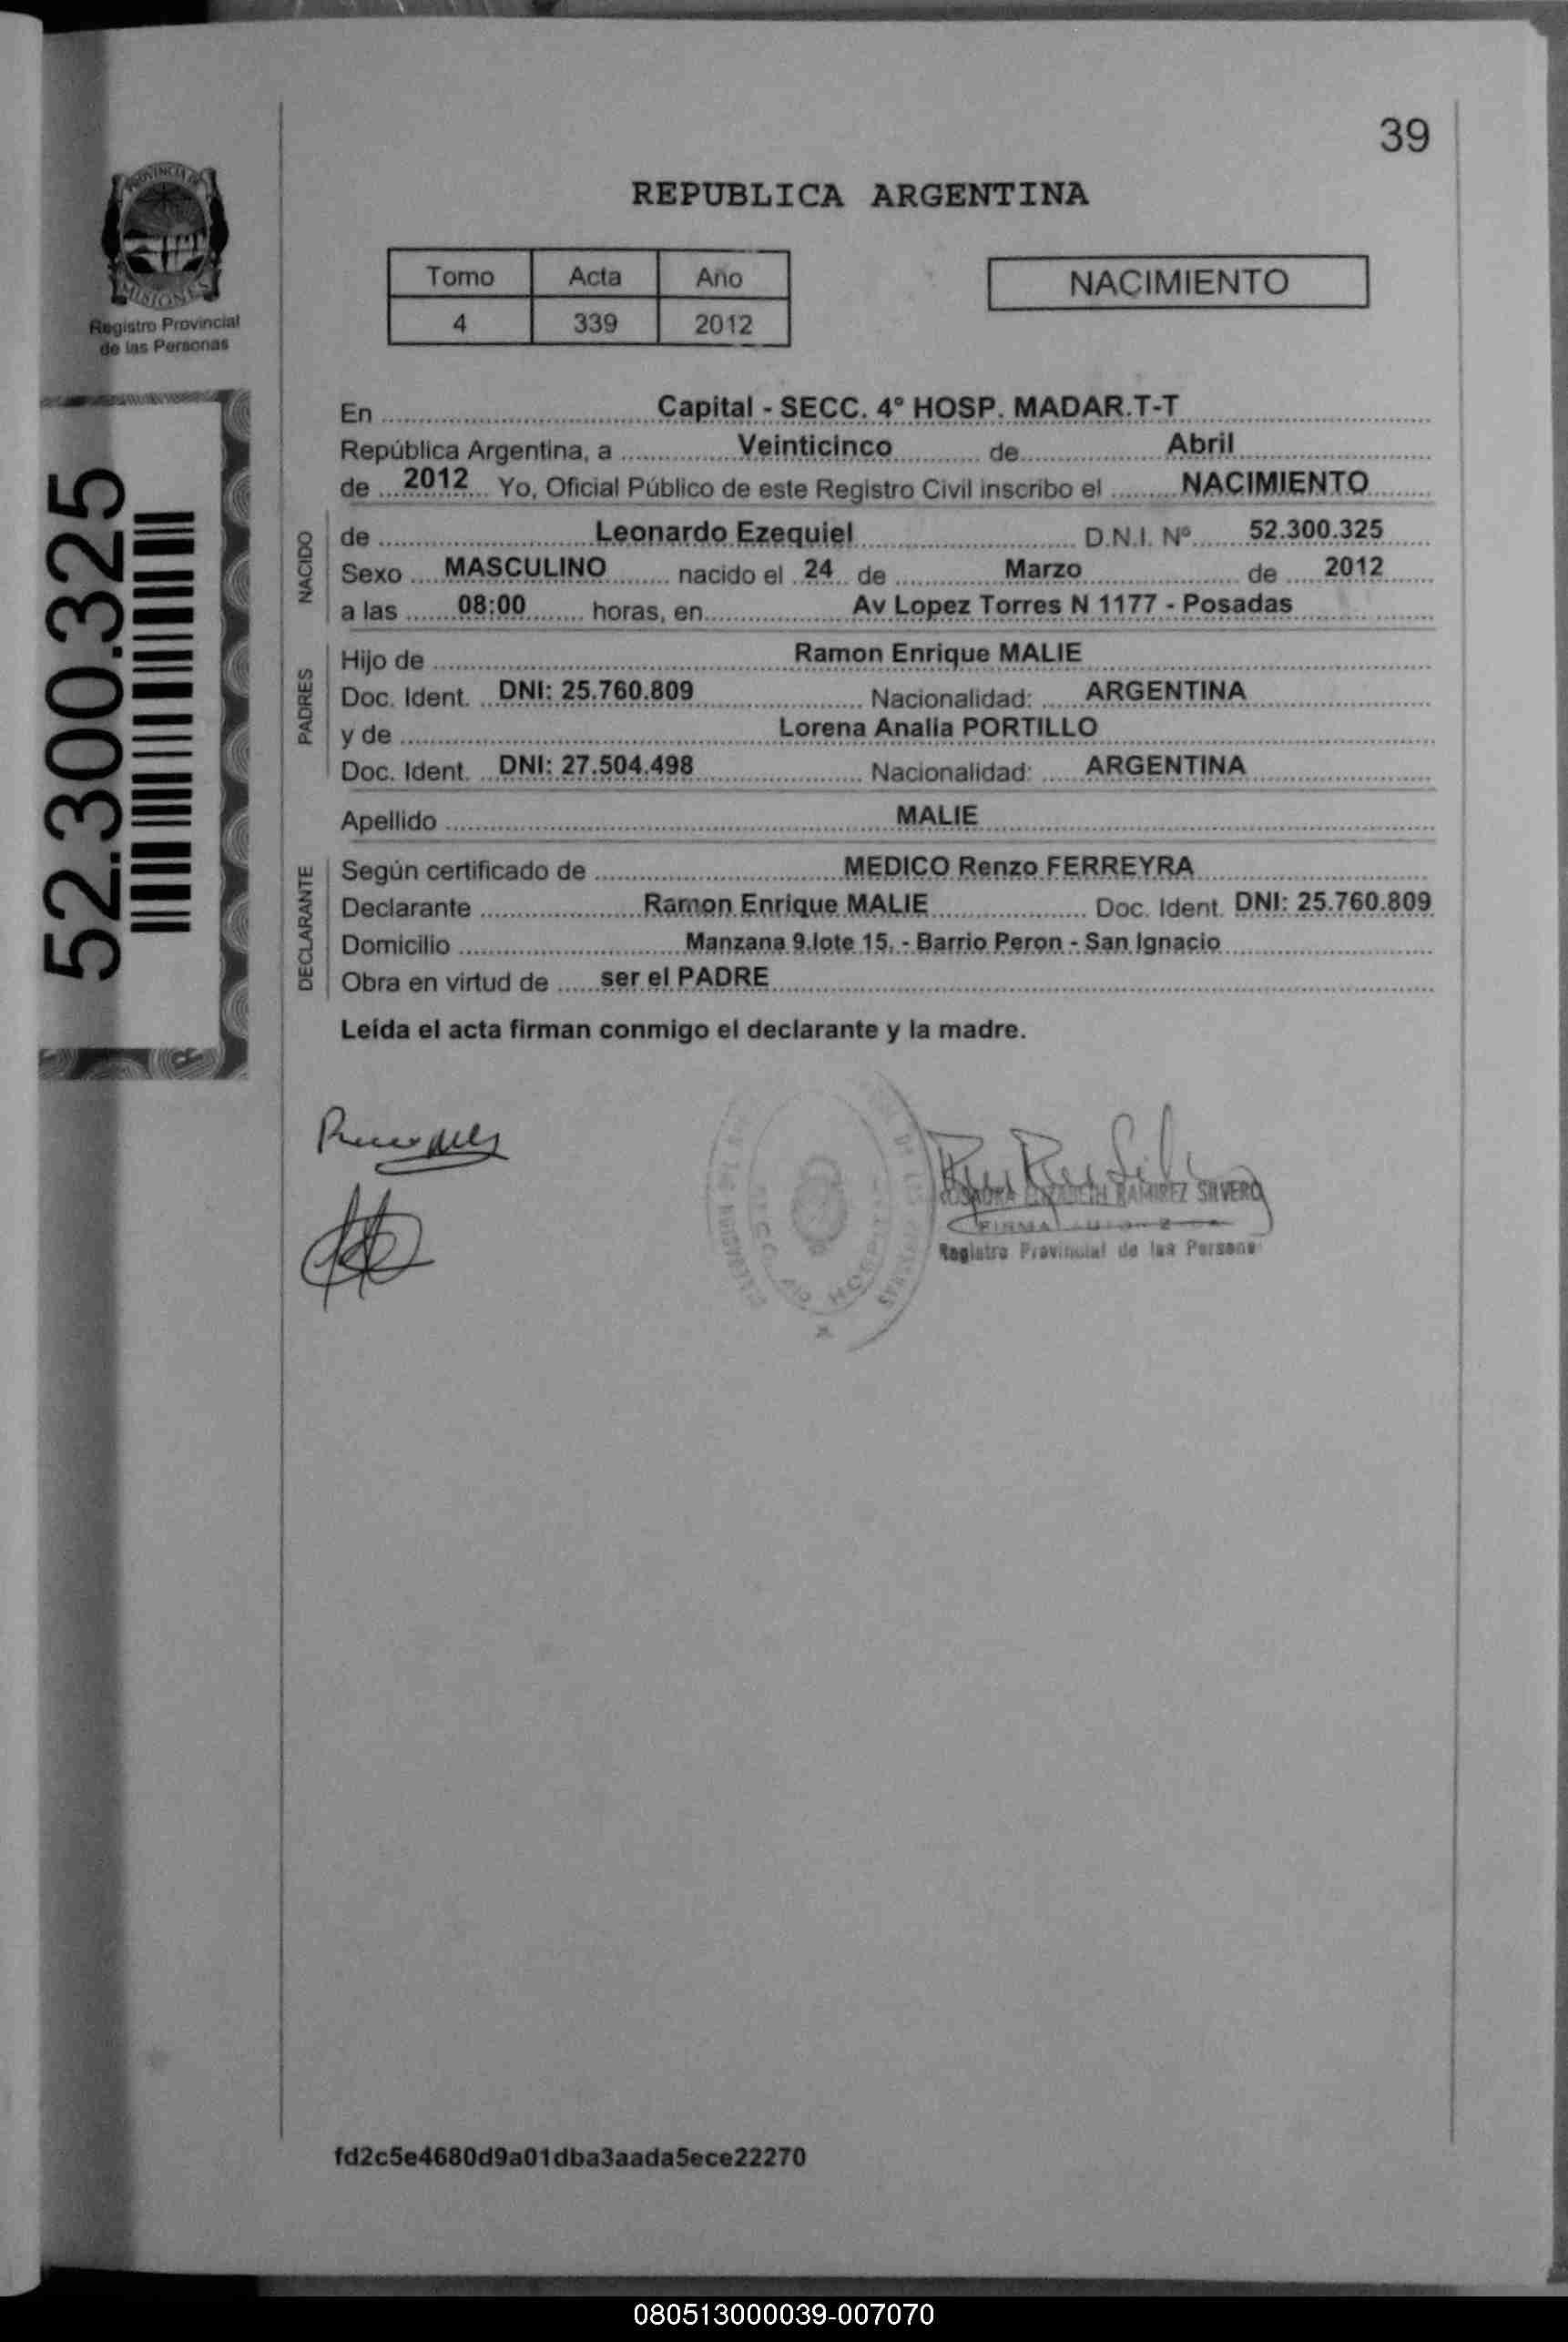 39
PROVINCIA DE
MISIONES
Registro Provincial
de las Personas
52.300.325
REPUBLICA ARGENTINA
Tomo Acta Año
4 339 2012
NACIMIENTO
En Capital - SECC. 4° HOSP. MADAR.T-T
República Argentina, a Veinticinco de Abril
de 2012 Yo, Oficial Público de este Registro Civil inscribo el NACIMIENTO
NACIDO
de Leonardo Ezequiel D.N.I. Nº 52.300.325
Sexo MASCULINO nacido el 24 de Marzo de 2012
a las 08:00 horas, en Av Lopez Torres N 1177 - Posadas
PADRES
Hijo de Ramon Enrique MALIE
Doc. Ident. DNI: 25.760.809 Nacionalidad: ARGENTINA
y de Lorena Analia PORTILLO
Doc. Ident. DNI: 27.504.498 Nacionalidad: ARGENTINA
Apellido MALIE
DECLARANTE
Según certificado de MEDICO Renzo FERREYRA
Declarante Ramon Enrique MALIE Doc. Ident. DNI: 25.760.809
Domicilio Manzana 9.lote 15. - Barrio Peron - San Ignacio
Obra en virtud de ser el PADRE
Leída el acta firman conmigo el declarante y la madre.
RAMIREZ SILVERO
FIRMA
Registro Provincial de las Persona
fd2c5e4680d9a01dba3aada5ece22270
080513000039-007070